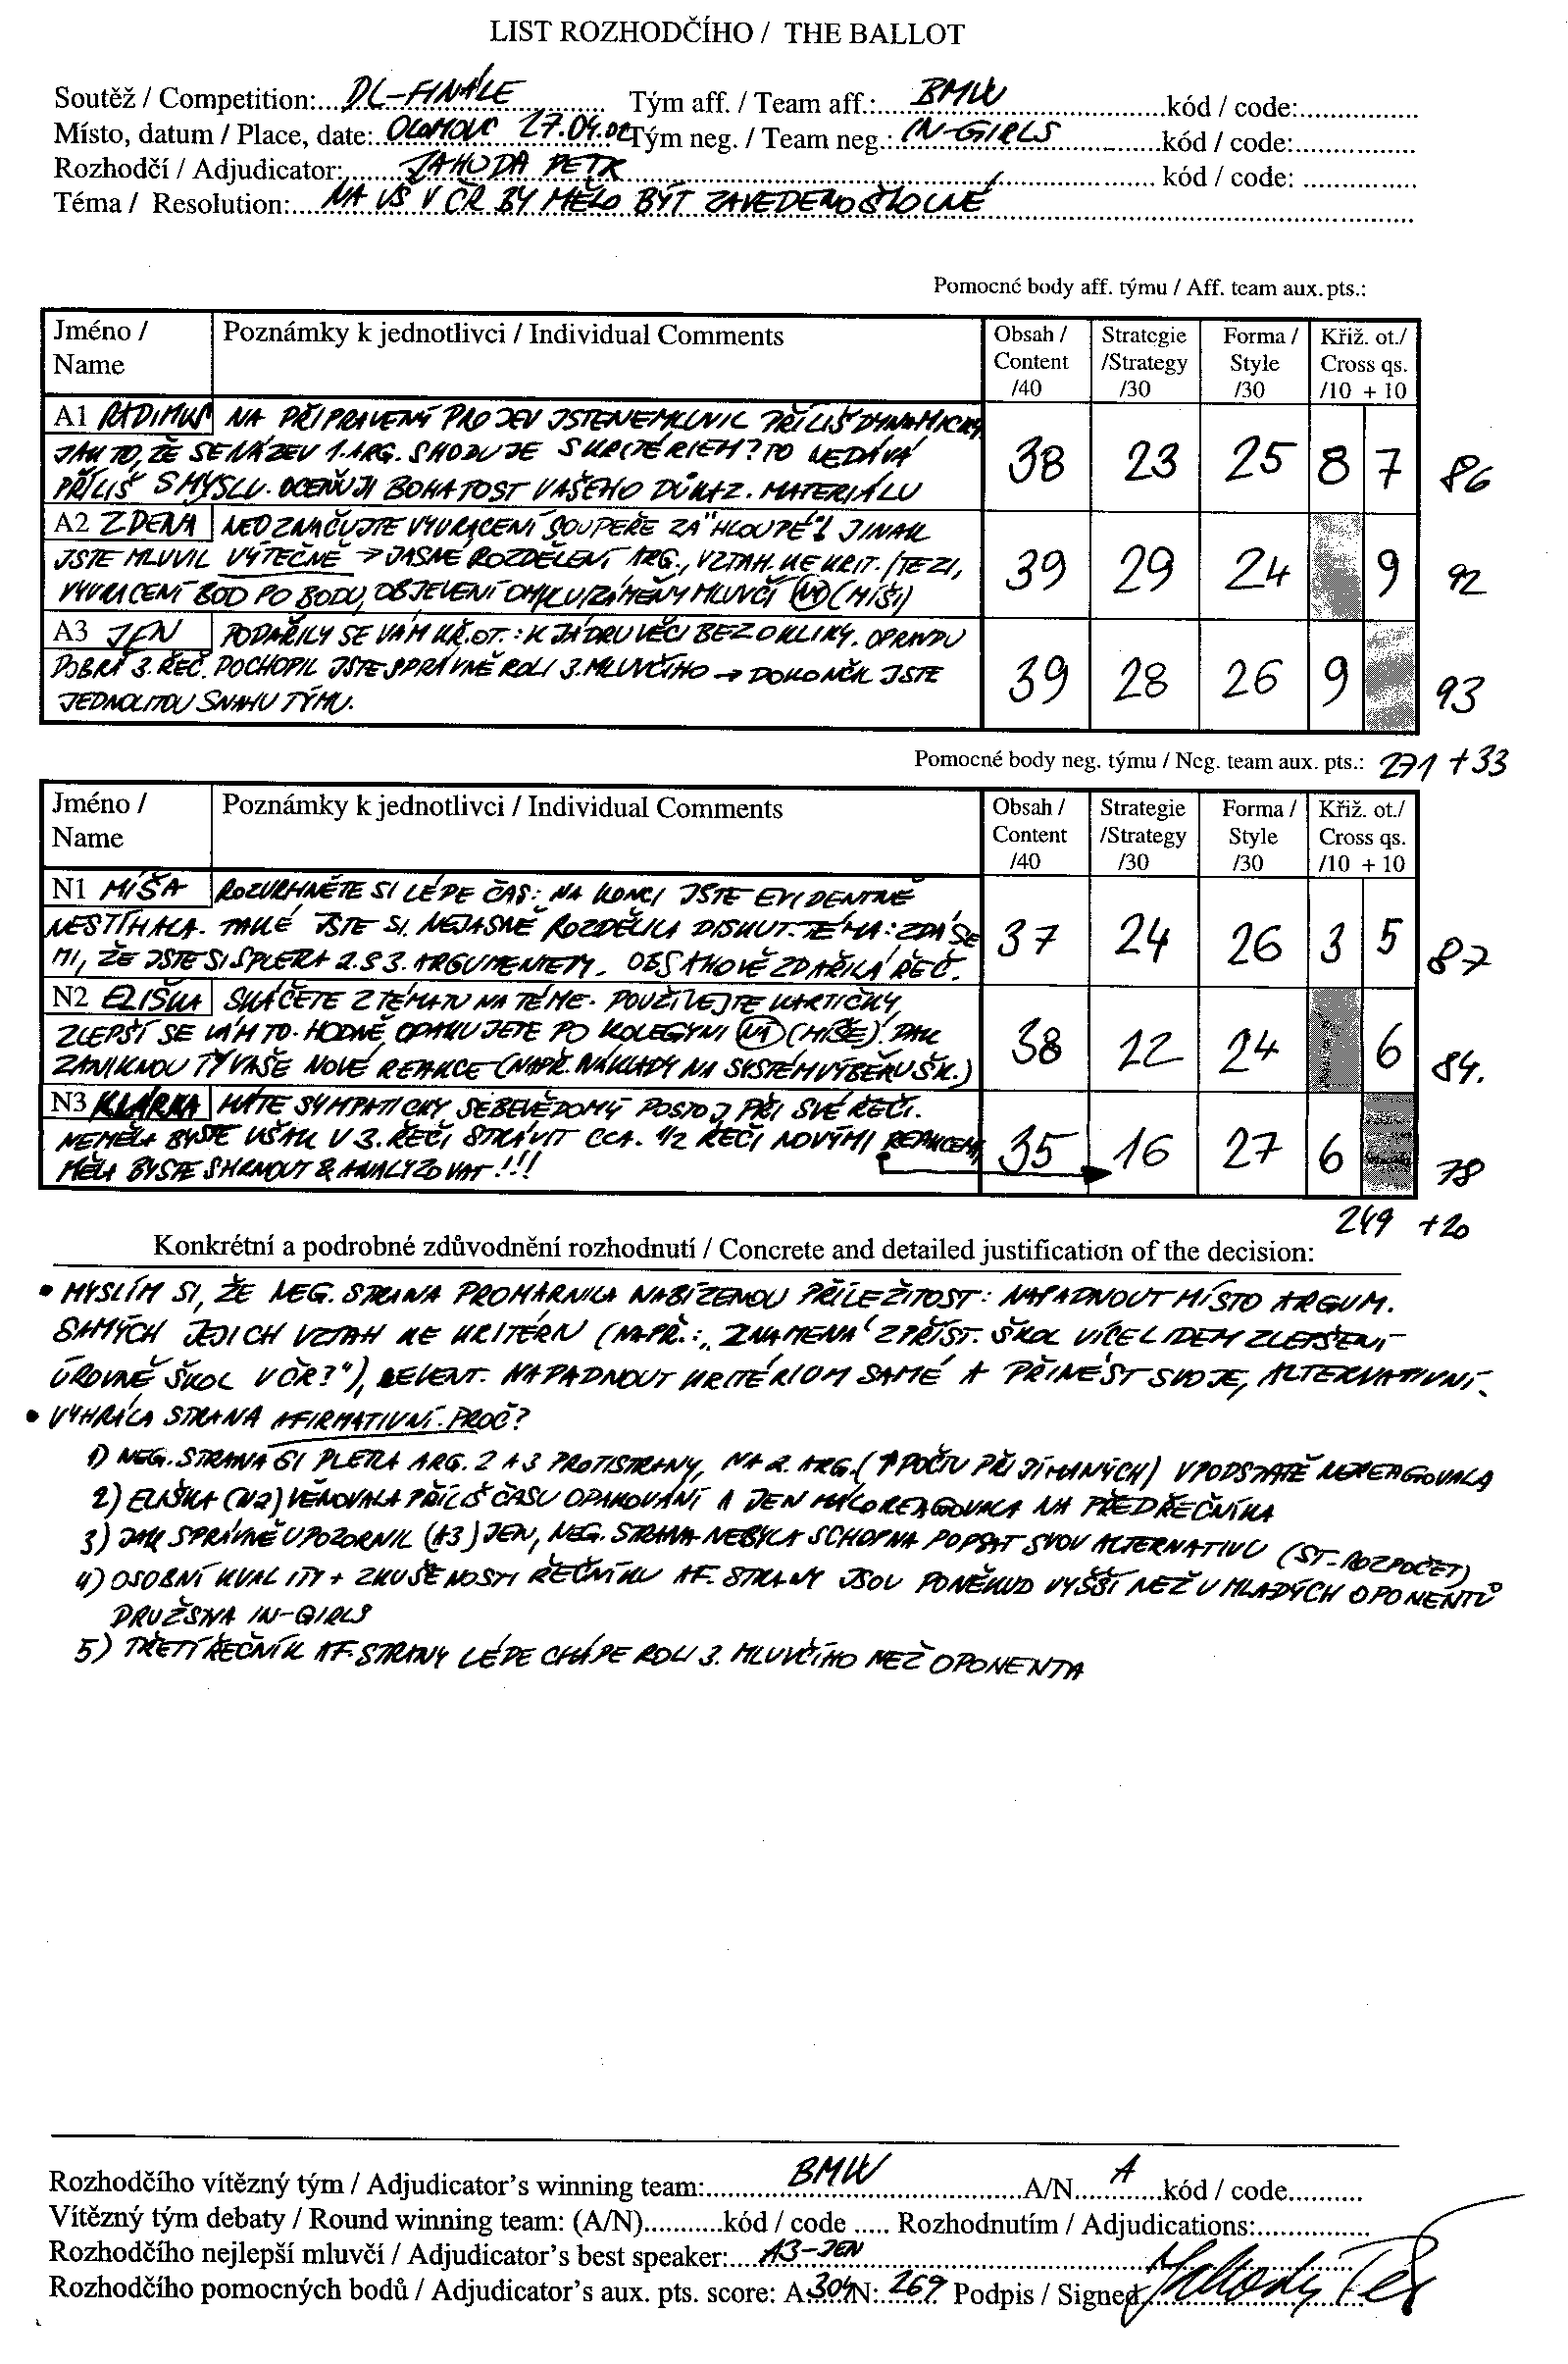 LIST ROZHODČÍHO / THE BALLOT
Soutěž / Competition: DL-FINÁLE Tým aff. / Team aff.: BMW kód / code:
Místo, datum / Place, date: OLOMOUC 27.04.02 Tým neg. / Team neg.: IN-GIRLS kód / code:
Rozhodčí / Adjudicator: JAHODA PETR kód / code:
Téma / Resolution: NA VŠ V ČR BY MĚLO BÝT ZAVEDENO ŠKOLNÉ
Pomocné body aff. týmu / Aff. team aux. pts.:
Jméno / Name Poznámky k jednotlivci / Individual Comments Obsah / Content /40 Strategie /Strategy /30 Forma / Style /30 Křiž. ot./ Cross qs. /10 + 10
A1 RADIMUS NA PŘIPRAVENÝ PROJEV JSTE NEMLUVIL PŘÍLIŠ DYNAMICKY
JAK TO, ŽE SE NÁZEV 1. ARG. SHODUJE S KRITÉRIEM? TO NEDÁVÁ 38 23 25 8 7 86
PŘÍLIŠ SMYSLU. OCEŇUJI BOHATOST VAŠEHO DŮKAZ. MATERIÁLU
A2 ZDENA NEOZNAČUJTE VYVRÁCENÍ SOUPEŘE ZA "HLOUPÉ"! JINAK
JSTE MLUVIL VÝTEČNĚ → JASNÉ ROZDĚLENÍ ARG., VZTAH. KE KRIT./TEZI, 39 29 24 9 92
VYVRACENÍ BOD PO BODU, OBJELENÍ OMYLU/ZÁMĚNY MLUVČÍ N1 (MÍŠI)
A3 JEN PODAŘILY SE VÁM KŘ. OT.: K JÁDRU VĚCI BEZ OKLIKY. OPRAVDU
DOBRÁ 3. ŘEČ. POCHOPIL JSTE SPRÁVNĚ ROLI 3. MLUVČÍHO → DOKONČIL JSTE 39 28 26 9 93
JEDNOLITOU SNAHU TÝMU.
Pomocné body neg. týmu / Neg. team aux. pts.: 271 +33
Jméno / Name Poznámky k jednotlivci / Individual Comments Obsah / Content /40 Strategie /Strategy /30 Forma / Style /30 Křiž. ot./ Cross qs. /10 + 10
N1 MÍŠA ROZVRHNĚTE SI LÉPE ČAS: NA KONCI JSTE EVIDENTNĚ
NESTÍHALA. TAKÉ JSTE SI NEJASNĚ ROZDĚLILA DISKUT. TÉMA: ZDÁ SE 37 24 26 3 5 87
MI, ŽE JSTE SI SPLETLA 2. S 3. ARGUMENTEM. OBSAHOVĚ ZDAŘILÁ ŘEČ.
N2 ELIŠKA SKÁČETE Z TÉMATU NA TÉMA. POUŽÍVEJTE KARTIČKY,
ZLEPŠÍ SE VÁM TO. HODNĚ OPAKUJETE PO KOLEGYNI N1 (MÍŠE). PAK 38 22 24 6 84.
ZANIKNOU TY VAŠE NOVÉ REAKCE (NAPŘ. NÁKLADY NA SYSTÉM VÝBĚRU ŠK.)
N3 KLÁRKA MÁTE SYMPATICKY SEBEVĚDOMÝ POSTOJ PŘI SVÉ ŘEČI.
NEMĚLA BYSTE VŠAK V 3. ŘEČI STRÁVIT CCA. 1/2 ŘEČI NOVÝMI REAKCEMI, 35 16 27 6 78
MĚLA BYSTE SHRNOUT & ANALYZOVAT!!!
249 +20
Konkrétní a podrobné zdůvodnění rozhodnutí / Concrete and detailed justification of the decision:
• MYSLÍM SI, ŽE NEG. STRANA PROMÁRNILA NABÍZENOU PŘÍLEŽITOST: NAPADNOUT MÍSTO ARGUM.
SAMÝCH JEJICH VZTAH KE KRITÉRIU (NAPŘ.: „ZNAMENÁ ZPŘÍST. ŠKOL VÍCE LIDEM ZLEPŠENÍ
ÚROVNĚ ŠKOL V ČR?"), EVENT. NAPADNOUT KRITÉRIUM SAMÉ A PŘINÉST SVOJE, ALTERNATIVNÍ.
• VYHRÁLA STRANA AFIRMATIVNÍ. PROČ?
1) NEG. STRANA SI PLETLA ARG. 2 A 3 PROTISTRANY, NA 2. ARG. (↑ POČTU PŘIJÍMANÝCH) V PODSTATĚ NEREAGOVALA
2) ELIŠKA (N2) VĚNOVALA PŘÍLIŠ ČASU OPAKOVÁNÍ A JEN MÁLO REAGOVALA NA PŘEDŘEČNÍKA
3) JAK SPRÁVNĚ UPOZORNIL (A3) JEN, NEG. STRANA NEBYLA SCHOPNA POPSAT SVOU ALTERNATIVU (ST. ROZPOČET)
4) OSOBNÍ KVALITY + ZKUŠENOSTI ŘEČNÍKŮ AF. STRANY JSOU PONĚKUD VYŠŠÍ NEŽ U MLADÝCH OPONENTŮ
DRUŽSTVA IN-GIRLS
5) TŘETÍ ŘEČNÍK AF. STRANY LÉPE CHÁPE ROLI 3. MLUVČÍHO NEŽ OPONENTA
Rozhodčího vítězný tým / Adjudicator's winning team: BMW A/N A kód / code
Vítězný tým debaty / Round winning team: (A/N) kód / code Rozhodnutím / Adjudications:
Rozhodčího nejlepší mluvčí / Adjudicator's best speaker: A3-JEN
Rozhodčího pomocných bodů / Adjudicator's aux. pts. score: A: 304 N: 269 Podpis / Signed